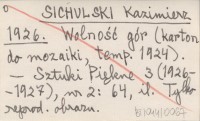 SICHULSKI Kazimierz
1926. Wolność gór (karton
do mozaiki, temp. 1924).
— Sztuki Piękne 3 (1926-
-1927), nr 2: 64, il. Tylko
reprod. obrazu.